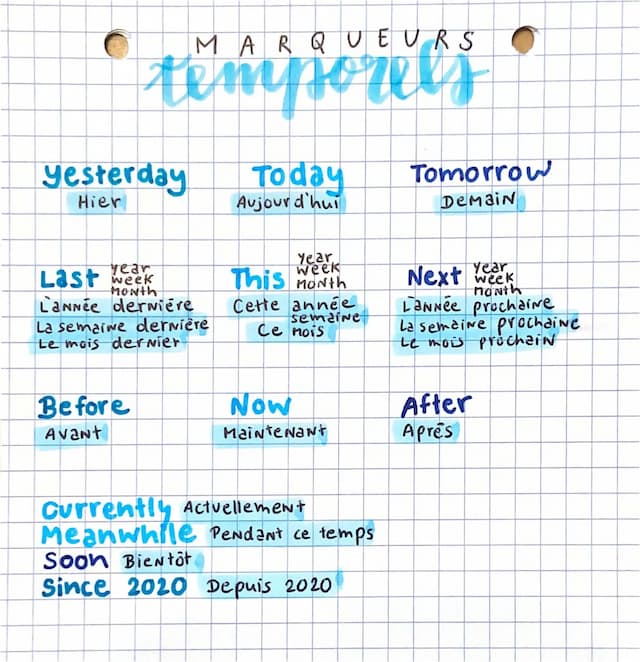 MARQUEURS
temporels
Yesterday Today Tomorrow
Hier Aujourd'hui Demain
Last year week month This year week month Next year week month
L'année dernière Cette année L'année prochaine
La semaine dernière semaine La semaine prochaine
Le mois dernier Ce mois Le mois prochain
Before Now After
Avant Maintenant Après
Currently Actuellement
Meanwhile Pendant ce temps
Soon Bientôt
Since 2020 Depuis 2020